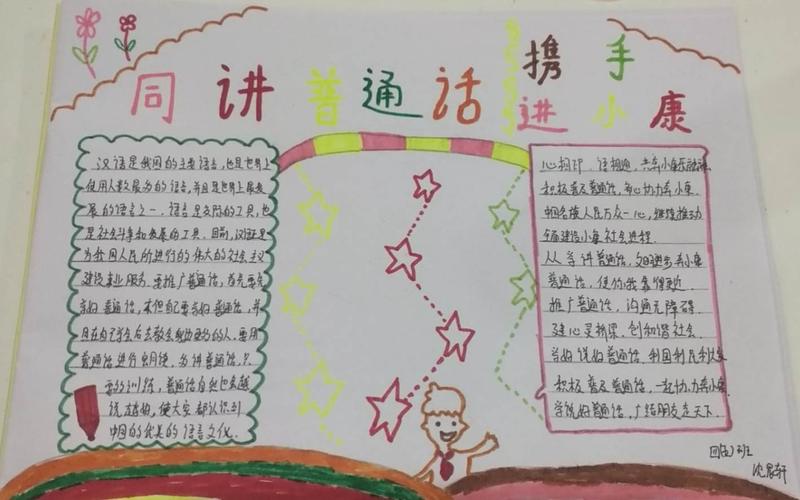 同讲普通话
携手
进小康
汉语是我国的主要语言,也是世界上
使用人数最多的语言,并且是世界上最发
展的语言之一。语言是交际的工具,也
是社会斗争和发展的工具。目前,汉语是
为我国人民所进行的伟大的社会主义
建设事业服务。要推广普通话,首先要先
学好普通话,不但自己要学好普通话,并
且在自己学会后去教会帮助更多的人。要用
普通话进行朗读,多讲普通话,只
要的训练,普通话自然也会越
说越好,使大家都认识到
中国的优美的语言文化。
心相印,语相通,共奔小康乐融融
积极普及普通话,齐心协力奔小康
中国各族人民万众一心,继续推动
全面建设小康社会进程。
从学讲普通话,文明进步奔小康
普通话,使你我靠得更近
推广普通话,沟通无障碍
建心灵桥梁,创和谐社会
学好说好普通话,利国利民利大家
积极普及普通话,一起协力奔小康
学说好普通话,广结朋友走天下
四(2)班
沈家轩